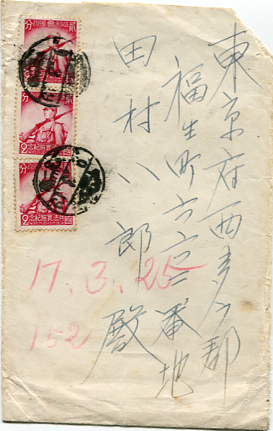 東京府西多摩郡
福生町六六二番地
田村八郎殿
17.3.25
152